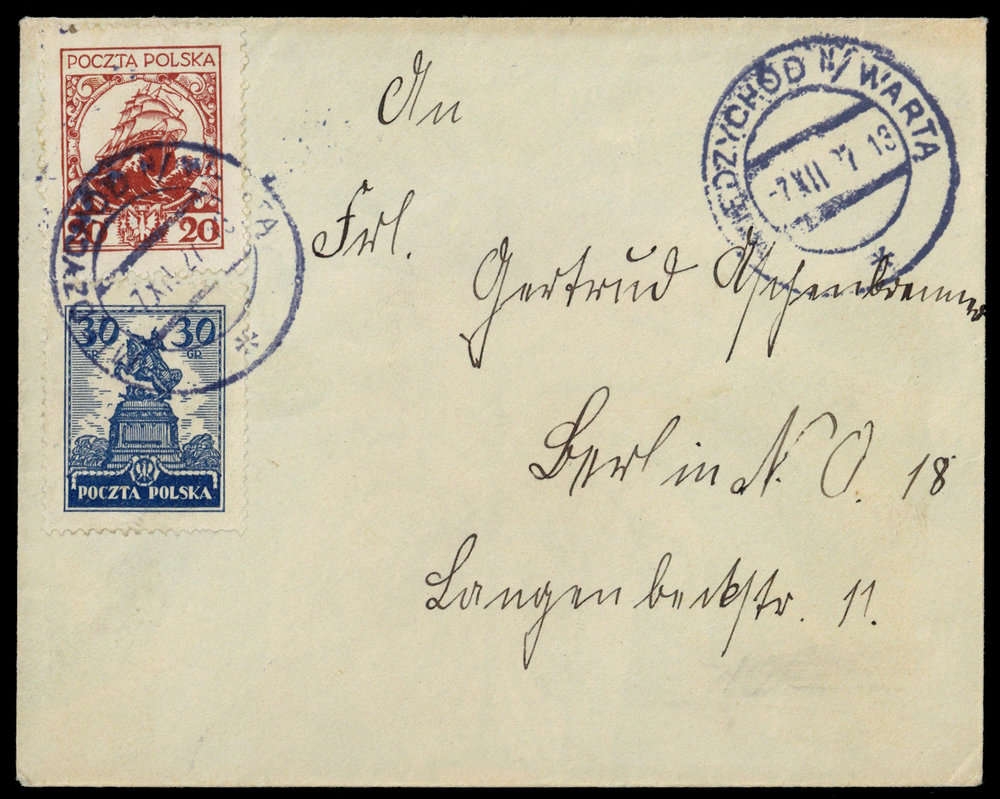 POCZTA POLSKA
20 20
30 30
GR GR
POCZTA POLSKA
MIĘDZYCHÓD N/WARTĄ
-7 XII 27 18
An
Frl.
Gertrud Aschenbrenner
Berlin N. O. 18
Langenbeckstr. 11.